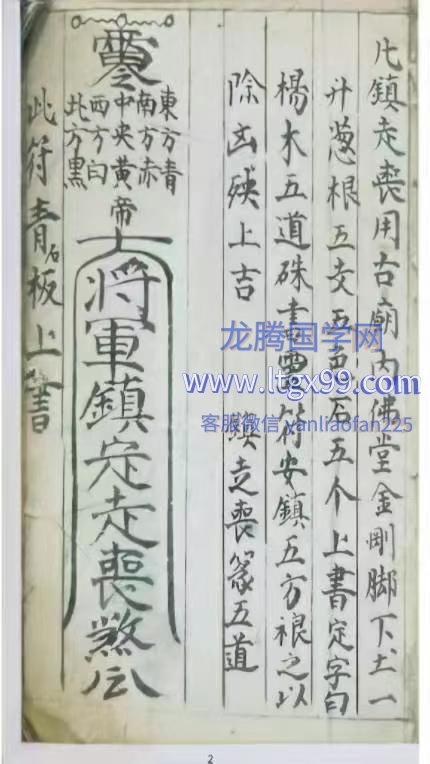 凡鎮走喪用古廟内佛堂金剛脚下土一
升葱根五支五色石五个上書定字曰
楊木五道硃書靈符安鎮五方禳之以
除凶殃上吉 鎮走喪篆五道
東方青
南方赤
中央黄
西方白
北方黑
帝
將軍鎮定走喪煞
此符青石板上書
龙腾国学网
www.ltgx99.com
客服微信 yanliaofan225
2